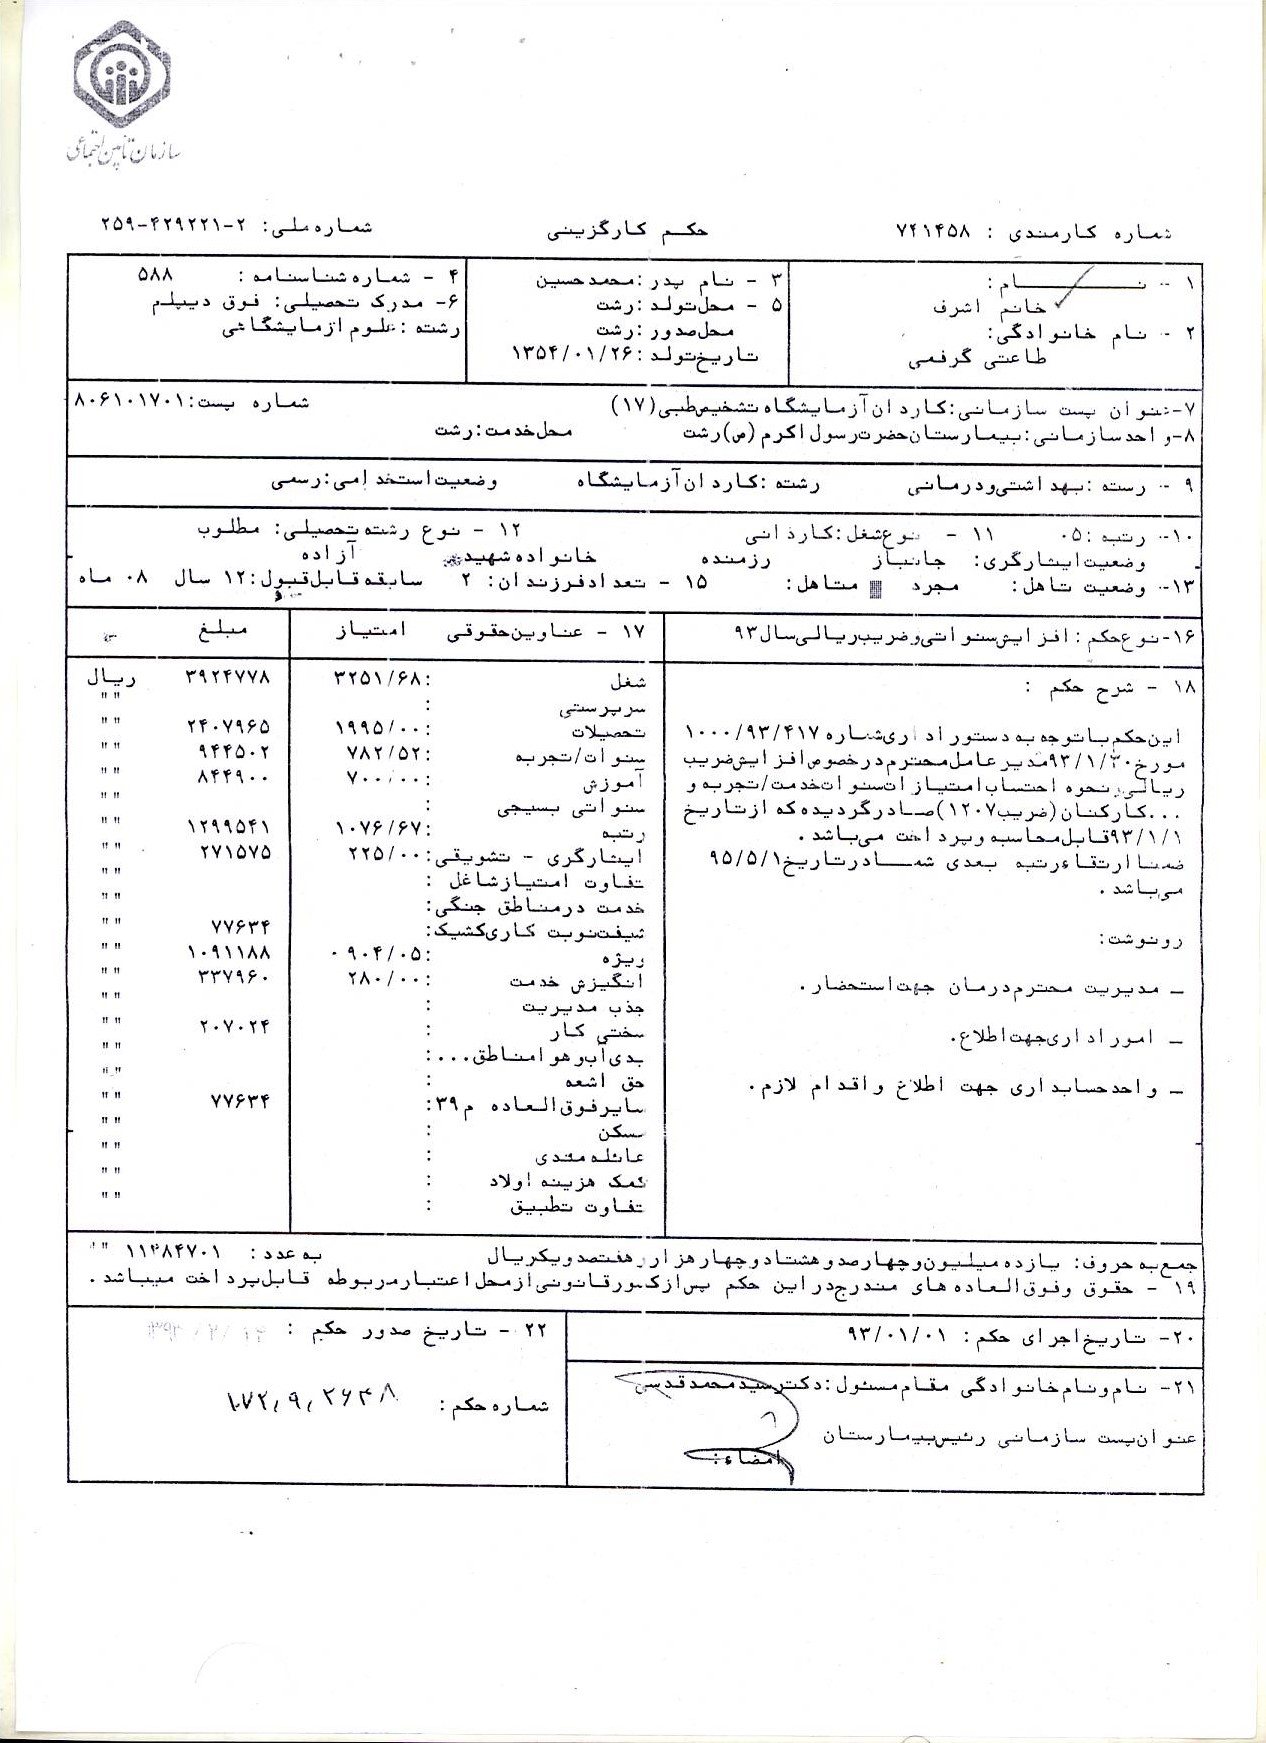 سازمان تأمین اجتماعی
شماره کارمندی : ۷۴۱۴۵۸ حکم کارگزینی شماره ملی: ۲-۴۲۹۲۲۱-۲۵۹
۱ - نــــــــام: ۳ - نام پدر :محمدحسین ۴ - شماره شناسنامه : ۵۸۸
خانم اشرف ۵ - محل تولد :رشت ۶- مدرک تحصیلی: فوق دیپلم
۲ - نام خانوادگی: محل صدور :رشت رشته :علوم ازمایشگاهی
طاعتی گرفمی تاریخ تولد :۱۳۵۴/۰۱/۲۶
۷-عنوان پست سازمانی:کاردان آزمایشگاه تشخیص طبی(۱۷) شماره پست:۸۰۶۱۰۱۷۰۱
۸-واحد سازمانی:بیمارستان حضرت رسول اکرم (ص)رشت محل خدمت:رشت
۹ - رسته :بهداشتی ودرمانی رشته :کاردان آزمایشگاه وضعیت استخدامی:رسمی
۱۰- رتبه :۰۵ ۱۱ - نوع شغل:کاردانی ۱۲ - نوع رشته تحصیلی: مطلوب
وضعیت ایثارگری: جانباز رزمنده خانواده شهید آزاده
۱۳- وضعیت تاهل: مجرد متاهل: ۱۵ - تعدادفرزندان: ۲ سابقه قابل قبول:۱۲ سال ۰۸ ماه
۱۶-نوع حکم : افزایش سنواتی وضریب ریالی سال ۹۳ ۱۷ - عناوین حقوقی امتیاز مبلغ
۱۸ - شرح حکم :
این حکم باتوجه به دستوراداری شماره ۱۰۰۰/۹۳/۴۱۷
مورخ ۹۳/۱/۳۰مدیرعامل محترم درخصوص افزایش ضریب
ریالی ونحوه احتساب امتیازات سنوات خدمت/تجربه و
...کارکنان(ضریب۱۲۰۷)صادرگردیده که ازتاریخ
۹۳/۱/۱قابل محاسبه وپرداخت میباشد .
ضمنا ارتقاءرتبه بعدی شمـــادرتاریخ۹۵/۵/۱
می باشد .
رونوشت:
ــ مدیریت محترم درمان جهت استحضار.
ــ اموراداری جهت اطلاع.
ــ واحدحسابداری جهت اطلاع واقدام لازم.
شغل :۳۲۵۱/۶۸ ۳۹۲۴۷۷۸ ریال
سرپرستی : " "
تحصیلات :۱۹۹۵/۰۰ ۲۴۰۷۹۶۵ " "
سنوات/تجربه :۷۸۲/۵۲ ۹۴۴۵۰۲ " "
آموزش :۷۰۰/۰۰ ۸۴۴۹۰۰ " "
سنواتی بسیجی : " "
رتبه :۱۰۷۶/۶۷ ۱۲۹۹۵۴۱ " "
ایثارگری - تشویقی:۲۲۵/۰۰ ۲۷۱۵۷۵ " "
تفاوت امتیازشاغل : " "
خدمت درمناطق جنگی: " "
شیفت نوبت کاری کشیک: ۷۷۶۳۴ " "
ویژه :۰۹۰۴/۰۵ ۱۰۹۱۱۸۸ " "
انگیزش خدمت :۲۸۰/۰۰ ۳۳۷۹۶۰ " "
جذب مدیریت : " "
سختی کار : ۲۰۷۰۲۴ " "
بدی آب وهوامناطق...: " "
حق اشعه : " "
سایرفوق العاده م۳۹: ۷۷۶۳۴ " "
مسکن : " "
عائله مندی : " "
کمک هزینه اولاد : " "
تفاوت تطبیق : " "
جمع به حروف: یازده میلیون وچهارصدوهشتادوچهارهزاروهفتصدویکریال به عدد: ۱۱۴۸۴۷۰۱ " "
۱۹ - حقوق وفوق العاده های مندرج دراین حکم پس ازکسورقانونی ازمحل اعتبارمربوطه قابل پرداخت میباشد.
۲۰- تاریخ اجرای حکم : ۹۳/۰۱/۰۱ ۲۲ - تاریخ صدور حکم :
۲۱- نام ونام خانوادگی مقام مسئول :دکترسیدمحمدقدسی شماره حکم :
عنوان پست سازمانی رئیس بیمارستان
امضاء: